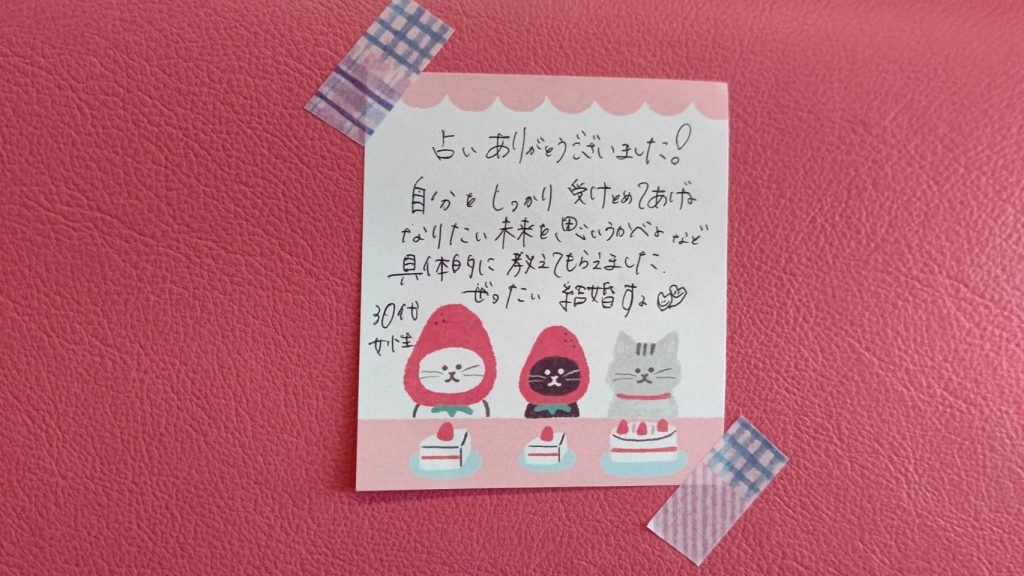 占い ありがとうございました!
自分を しっかり 受けとめてあげる
なりたい未来を思いうかべる など
具体的に 教えてもらえました
ぜったい 結婚する
30代
女性